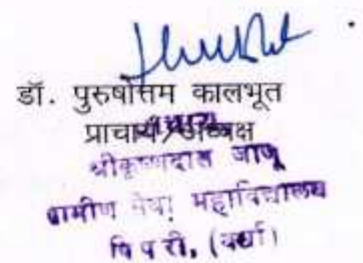 डॉ. पुरुषोत्तम कालभूत
प्राचार्य/अध्यक्ष
श्रीकृष्णदास जाजू
ग्रामीण सेवा महाविद्यालय
पिपरी, (वर्धा)